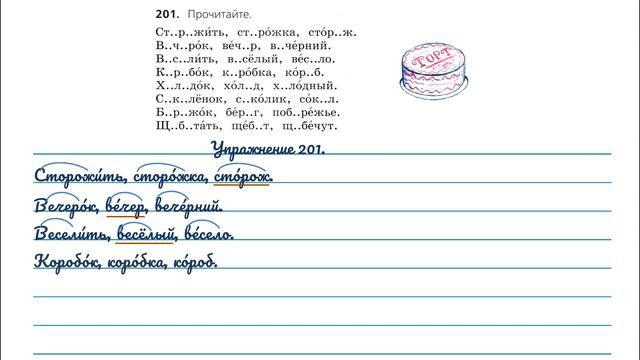 201. Прочитайте.
Ст..р..жи́ть, ст..ро́жка, сто́р..ж.
В..ч..ро́к, ве́ч..р, в..че́рний.
В..с..ли́ть, в..сёлый, ве́с..ло.
К..р..бо́к, к..ро́бка, ко́р..б.
Х..л..до́к, хо́л..д, х..ло́дный.
С..к..лёнок, с..ко́лик, со́к..л.
Б..р..жо́к, бе́р..г, поб..ре́жье.
Щ..б..та́ть, ще́б..т, щ..бе́чут.
ТОРТ
Упражнение 201.
Сторожи́ть, сторо́жка, сто́рож.
Вечеро́к, ве́чер, вече́рний.
Весели́ть, весёлый, ве́село.
Коробо́к, коро́бка, ко́роб.